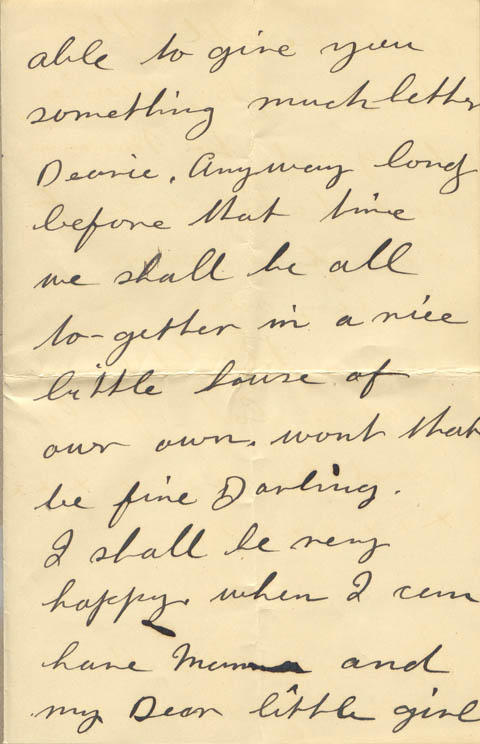 able to give you
something much better
Dearie. Anyway long
before that time
we shall be all
to-getter in a nice
little house of
our own. wont that
be fine Darling.
I shall be very
happy. when I can
have Mamma and
my Dear little girl